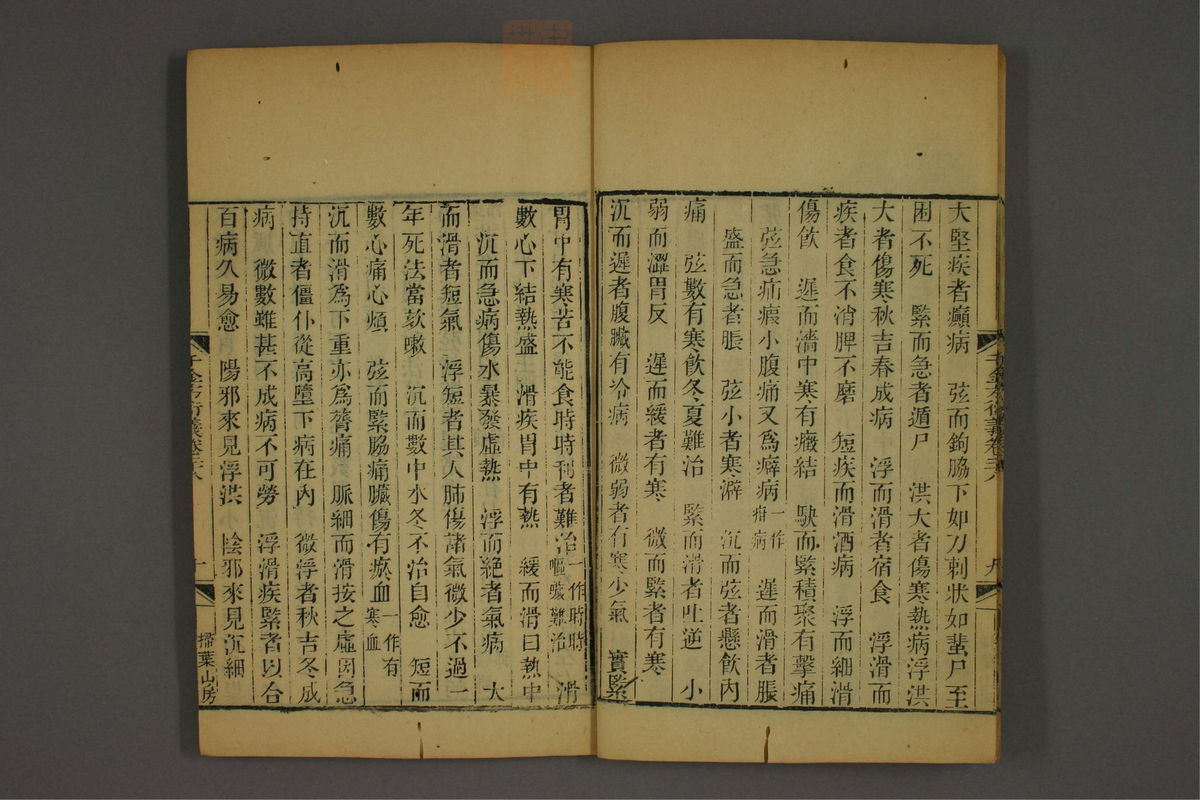 大堅疾者癲病　弦而鉤脇下如刀刺狀如蜚尸至
困不死　緊而急者遁尸　洪大者傷寒熱病浮洪
大者傷寒秋吉春成病　浮而滑者宿食　浮滑而
疾者食不消脾不磨　短疾而滑酒病　浮而細滑
傷飲　遲而濇中寒有癥結　駃而緊積聚有擊痛
弦急疝瘕小腹痛又爲癖病一作疳病　遲而滑者脹
盛而急者脹　弦小者寒澼　沉而弦者懸飲內
痛　弦數有寒飲冬夏難治　緊而滑者吐逆　小
弱而濇胃反　遲而緩者有寒　微而緊者有寒
沉而遲者腹臟有冷病　微弱者有寒少氣　實緊
胃中有寒苦不能食時時利者難治一作時時嘔噦難治　滑
數心下結熱盛　滑疾胃中有熱　緩而滑曰熱中
沉而急病傷水暴發虛熱　浮而絕者氣病　大
而滑者短氣　浮短者其人肺傷諸氣微少不過一
年死法當欬嗽　沉而數中水冬不治自愈　短而
數心痛心煩　弦而緊脇痛臟傷有瘀血一作有寒血
沉而滑爲下重亦爲膂痛　脈細而滑按之虛因急
持直者僵仆從高墮下病在內　微浮者秋吉冬成
病　微數雖甚不成病不可勞　浮滑疾緊者以合
百病久易愈　陽邪來見浮洪　陰邪來見沉細
掃葉山房